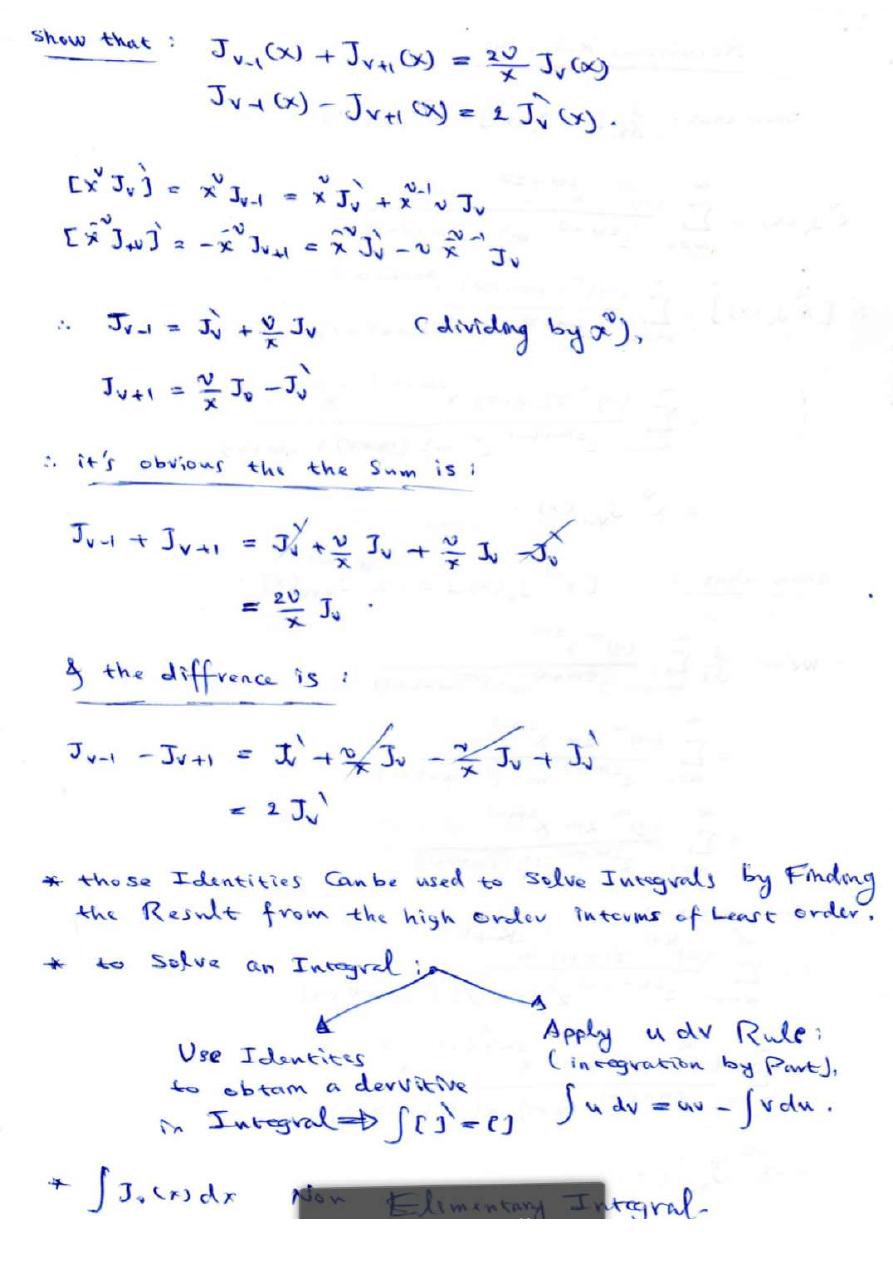 Show that : J_{ν-1}(x) + J_{ν+1}(x) = 2ν/x J_ν(x)
J_{ν-1}(x) - J_{ν+1}(x) = 2 J_ν`(x) .
[x^ν J_ν]` = x^ν J_{ν-1} = x^ν J_ν` + x^{ν-1} ν J_ν
[x^{-ν} J_{+ν}]` = -x^{-ν} J_{ν+1} = x^{-ν} J_ν` - ν x^{-ν-1} J_ν
∴ J_{ν-1} = J_ν` + ν/x J_ν (dividing by x^ν),
J_{ν+1} = ν/x J_ν - J_ν`
∴ it's obvious the the Sum is :
J_{ν-1} + J_{ν+1} = J_ν` + ν/x J_ν + ν/x J_ν - J_ν`
= 2ν/x J_ν .
& the diffrence is :
J_{ν-1} - J_{ν+1} = J_ν` + ν/x J_ν - ν/x J_ν + J_ν`
= 2 J_ν`
* those Identities Can be used to Solve Integrals by Finding
the Result from the high order interms of Least order.
* to Solve an Integral :
Use Identites
to obtam a dervitive
in Integral ⇒ ∫[ ]` = [ ]
Apply u dv Rule :
(integration by Part),
∫ u dv = uv - ∫ v du .
* ∫ J_0(x) dx Non Elimentary Integral-